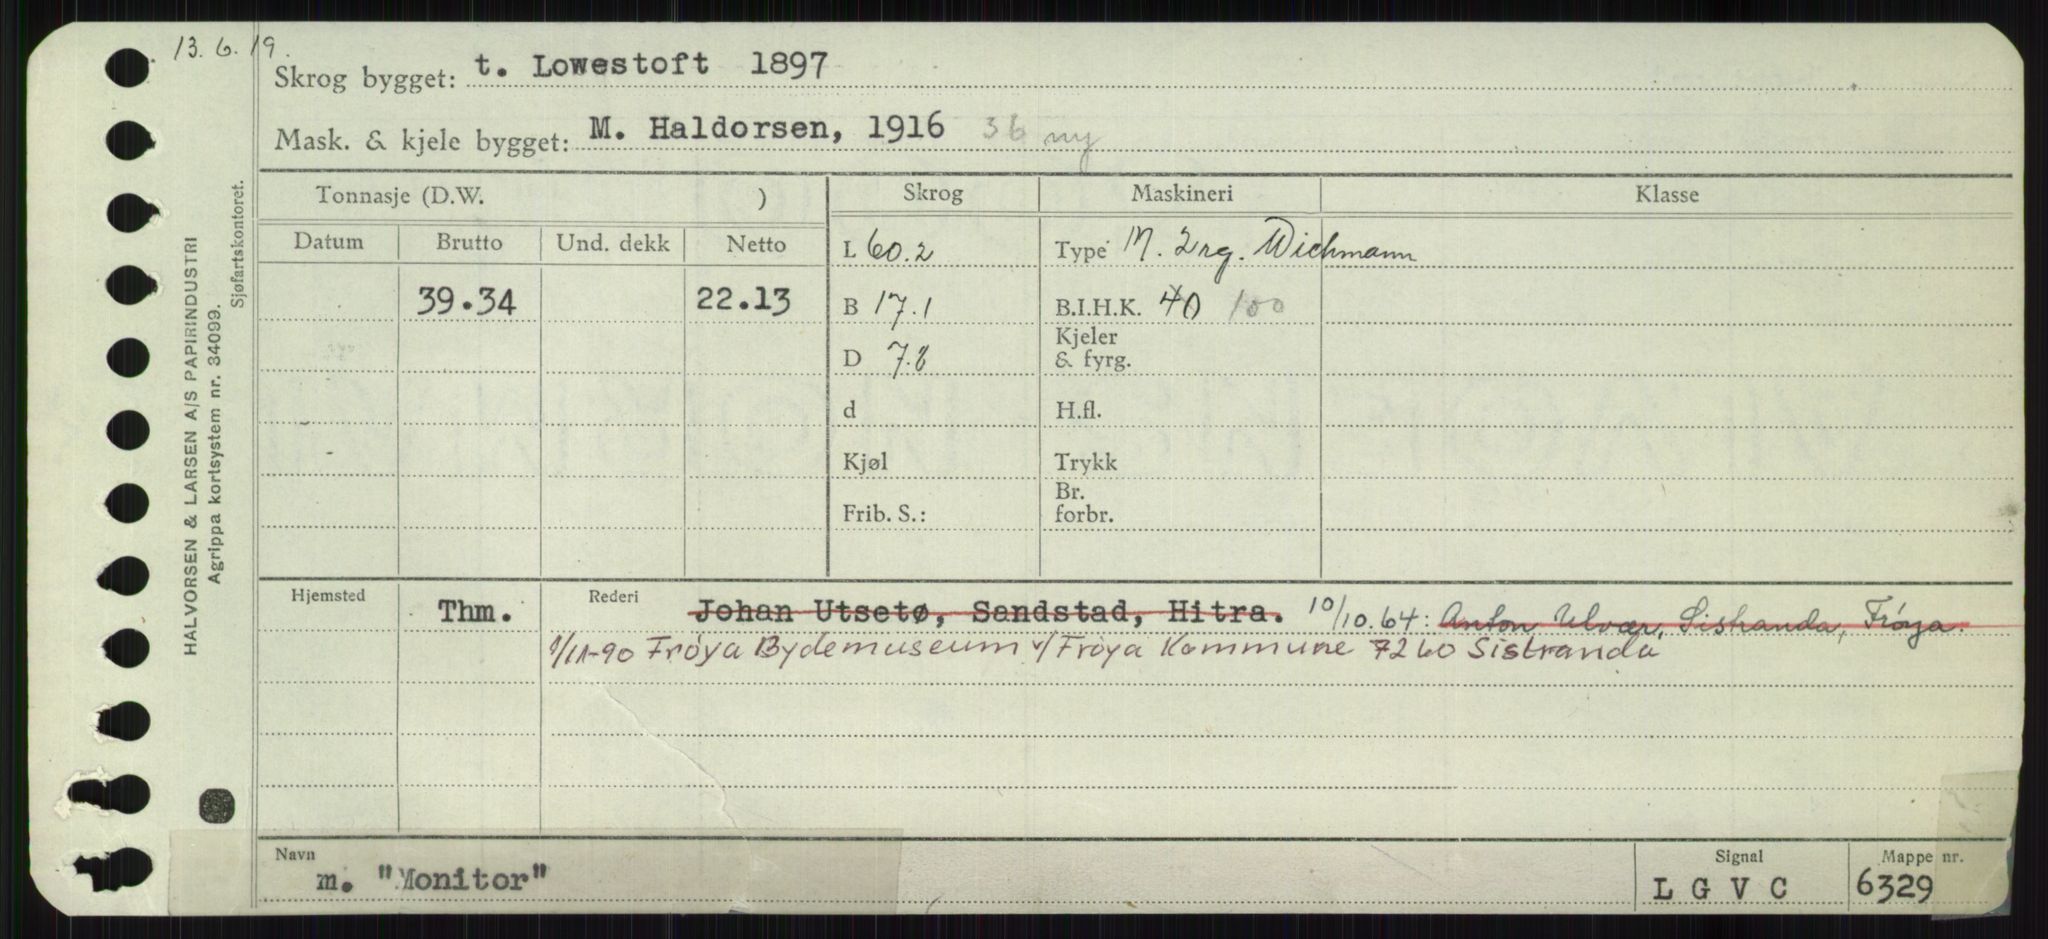 13. 6. 19.
Skrog bygget: t. Lowestoft 1897
Mask. & kjele bygget: M. Haldorsen, 1916 36 ny
Tonnasje (D.W. ) Skrog Maskineri Klasse
Datum Brutto Und. dekk Netto
L 60.2 Type M. 2 rg. Wichmann
39.34 22.13 B 17.1 B.I.H.K. 40 100
D 7.8 Kjeler
& fyrg.
d H.fl.
Kjøl Trykk
Frib. S.: Br.
forbr.
Hjemsted Thm. Rederi Johan Utsetø, Sandstad, Hitra. 10/10.64: Anton Ulvær, Sistranda, Frøya.
1/11-90 Frøya Bydemuseum v/ Frøya Kommune 7260 Sistranda
Navn Signal Mappe nr.
m. "Monitor" L G V C 6329
HALVORSEN & LARSEN A/S PAPIRINDUSTRI
Agrippa kortsystem nr. 34099.
Sjøfartskontoret.